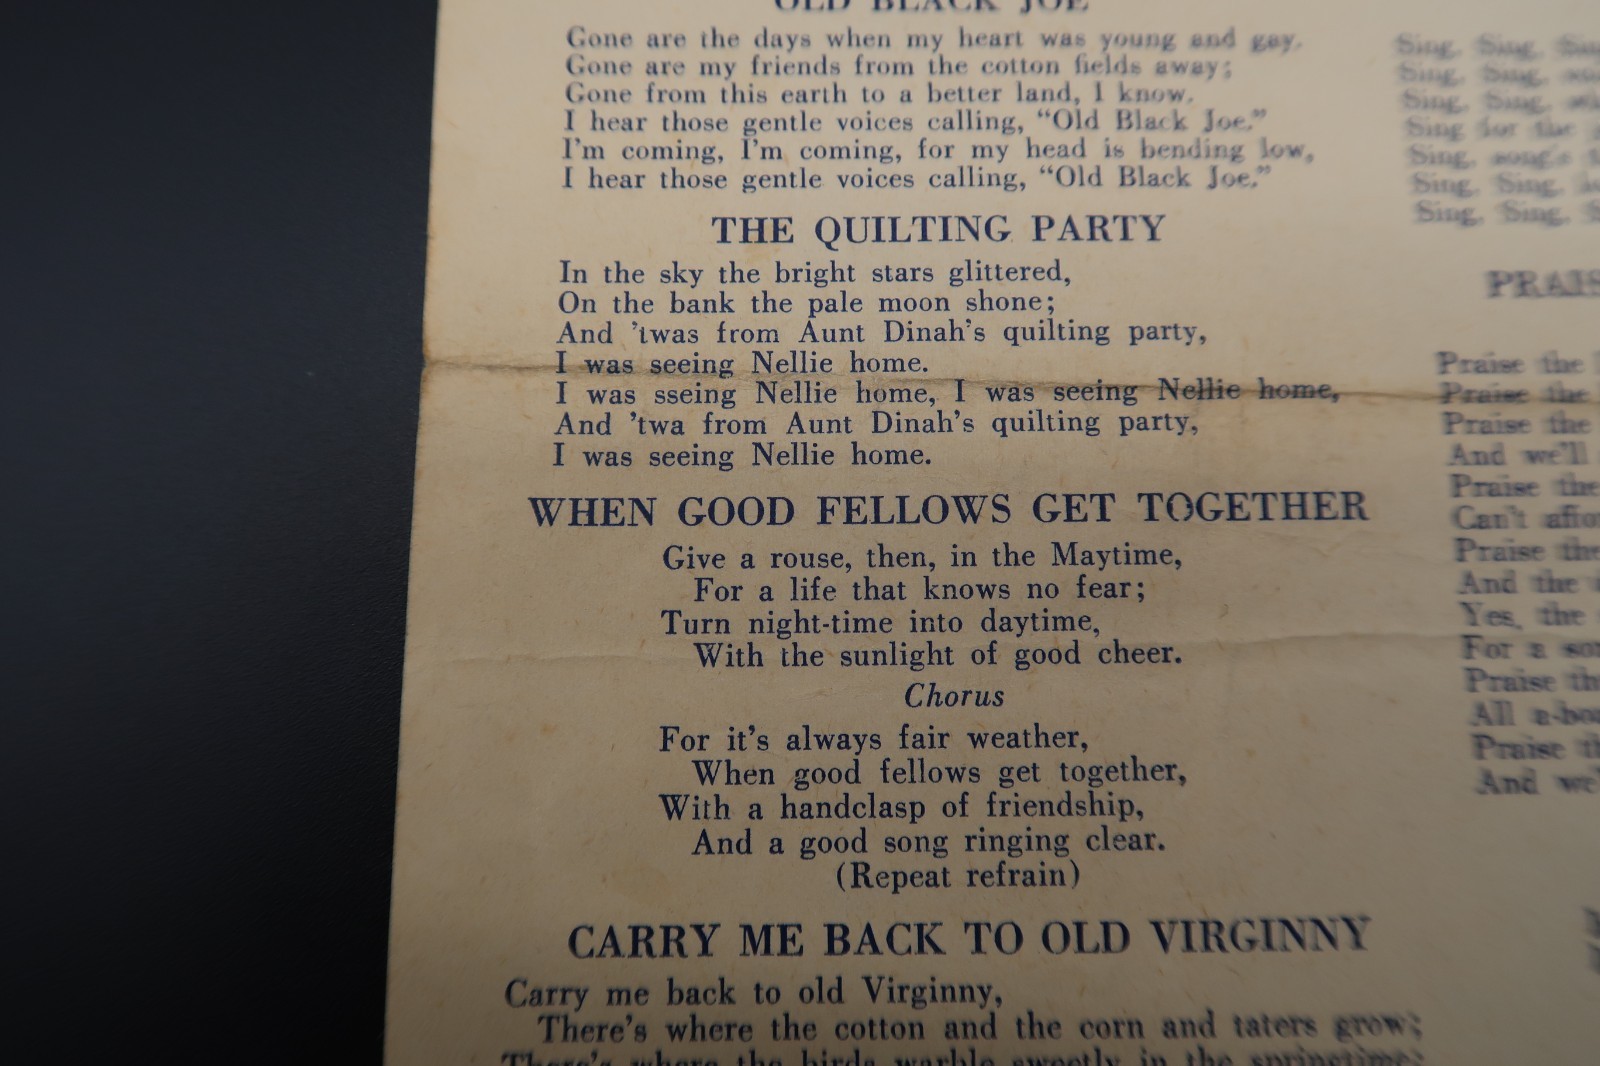 OLD BLACK JOE
Gone are the days when my heart was young and gay,
Gone are my friends from the cotton fields away;
Gone from this earth to a better land, I know,
I hear those gentle voices calling, “Old Black Joe.”
I'm coming, I'm coming, for my head is bending low,
I hear those gentle voices calling, “Old Black Joe.”
THE QUILTING PARTY
In the sky the bright stars glittered,
On the bank the pale moon shone;
And 'twas from Aunt Dinah's quilting party,
I was seeing Nellie home.
I was sseing Nellie home, I was seeing Nellie home,
And 'twa from Aunt Dinah's quilting party,
I was seeing Nellie home.
WHEN GOOD FELLOWS GET TOGETHER
Give a rouse, then, in the Maytime,
For a life that knows no fear;
Turn night-time into daytime,
With the sunlight of good cheer.
Chorus
For it's always fair weather,
When good fellows get together,
With a handclasp of friendship,
And a good song ringing clear.
(Repeat refrain)
CARRY ME BACK TO OLD VIRGINNY
Carry me back to old Virginny,
There's where the cotton and the corn and taters grow;
There's where the birds warble sweetly in the springtime;
Sing, Sing,
Sing, Sing,
Sing, Sing,
Sing for the
Sing, song's
Sing, Sing,
Sing, Sing,
Praise the
Praise the
Praise the
And we'll
Praise the
Can't
Praise the
And the
Yes, the
For a
Praise
All
Praise
And